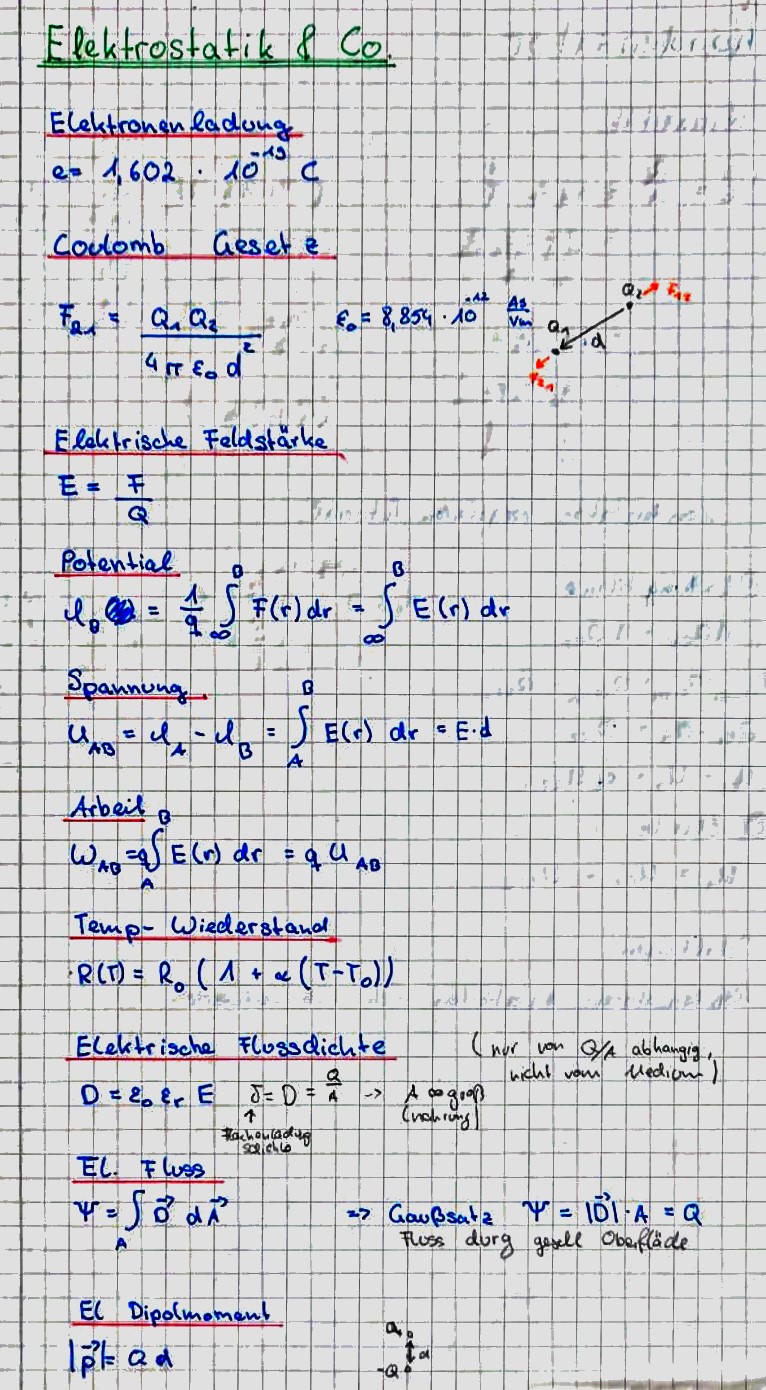 Elektrostatik & Co.
Elektronenladung
e = 1,602 · 10^-19 C
Coulomb Gesetz
F_21 = Q_1 Q_2 / 4 π ε_0 d^2    ε_0 = 8,854 · 10^-12 As/Vm
Q_2 F_12
Q_1 d
F_21
Elektrische Feldstärke
E = F / Q
Potential
φ_B = 1/q ∫_∞^B F(r) dr = ∫_∞^B E(r) dr
Spannung
U_AB = φ_A - φ_B = ∫_A^B E(r) dr = E·d
Arbeit
W_AB = q ∫_A^B E(r) dr = q U_AB
Temp- Wiederstand
R(T) = R_0 (1 + α (T-T_0))
Elektrische Flussdichte (nur von Q/A abhängig,
nicht vom Medium)
D = ε_0 ε_r E   δ = D = Q/A -> A ∞ groß
↑ (nährung)
Flächenladung
sdichte
El. Fluss
Ψ = ∫_A D⃗ dA⃗   => Gaußsatz Ψ = |D⃗| · A = Q
Fluss durg gesell Oberfläde
El Dipolmoment
|p⃗| = Q d
d
-Q